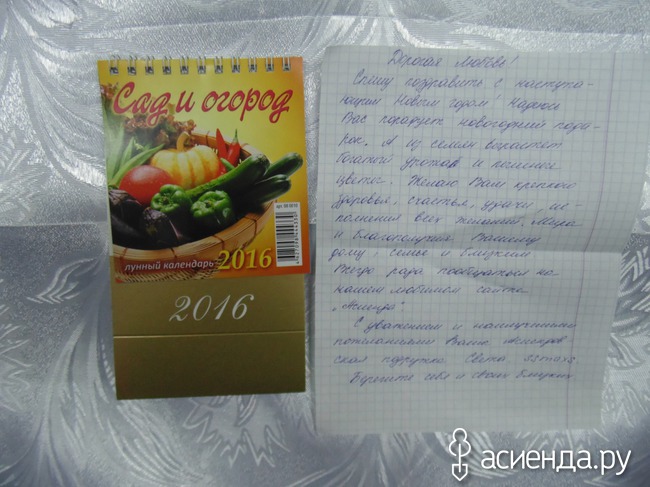 Сад и огород
лунный календарь 2016
2016
Дорогая Любовь!
Спешу поздравить с наступа-
ющим Новым годом! Надеюсь
Вас порадует новогодний пода-
рок. А из семян вырастет
богатый урожай и
цветов. Желаю Вам крепкого
здоровья, счастья, удачи, ис-
полнения всех желаний. Мира
и благополучия Вашему
дому, семье и близким
Всегда рада пообщаться на
нашем любимом сайте
„Асиенда"
С уважением и наилучшими
пожеланиями Ваша асиендов
ская подружка Света ssmaxs
Берегите себя и своих близких
асиенда.ру